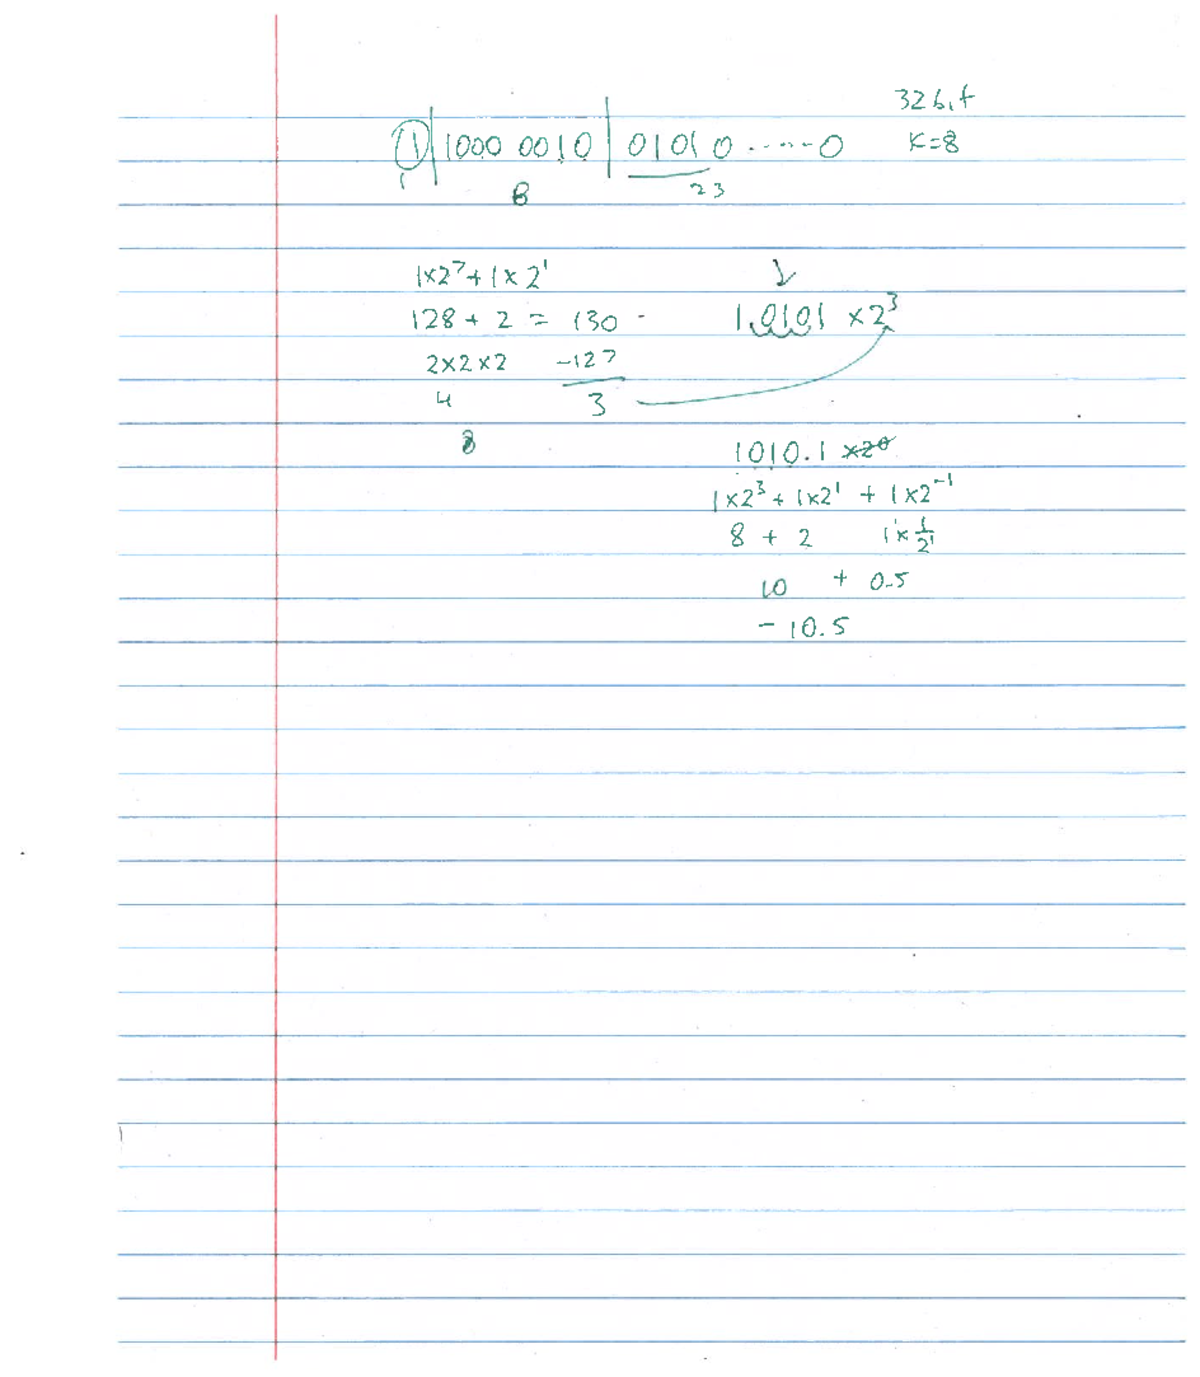 32 bit
① | 1000 0010 | 01010 ...... 0 K=8
1 8 23
1×2⁷ + 1×2¹
128 + 2 = 130 -
2×2×2 -127
4 3
8
1.0101 ×2³
1010.1 ×2⁰
1×2³ + 1×2¹ + 1×2⁻¹
8 + 2 1×1/2¹
10 + 0.5
- 10.5